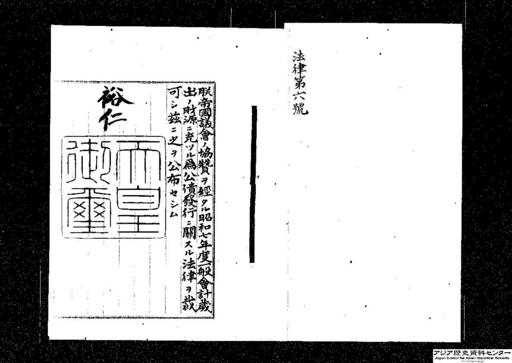 法律第六號
朕帝國議會ノ協贊ヲ經タル昭和七年度一般會計歳
出ノ財源ニ充ツル爲公債發行ニ關スル法律ヲ裁
可シ茲ニ之ヲ公布セシム
裕仁
天皇
御璽
アジア歴史資料センター
Japan Center for Asian Historical Records